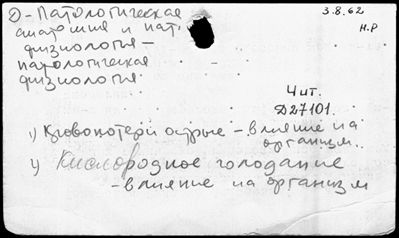 д - Патологическая
анатомия и пат.
физиология -
патологическая
физиология
3.8.62
Н.Р
Чит.
Д27101.
1) Кровопотери острые - влияние на
организм..
1) Кислородное голодание
- влияние на организм